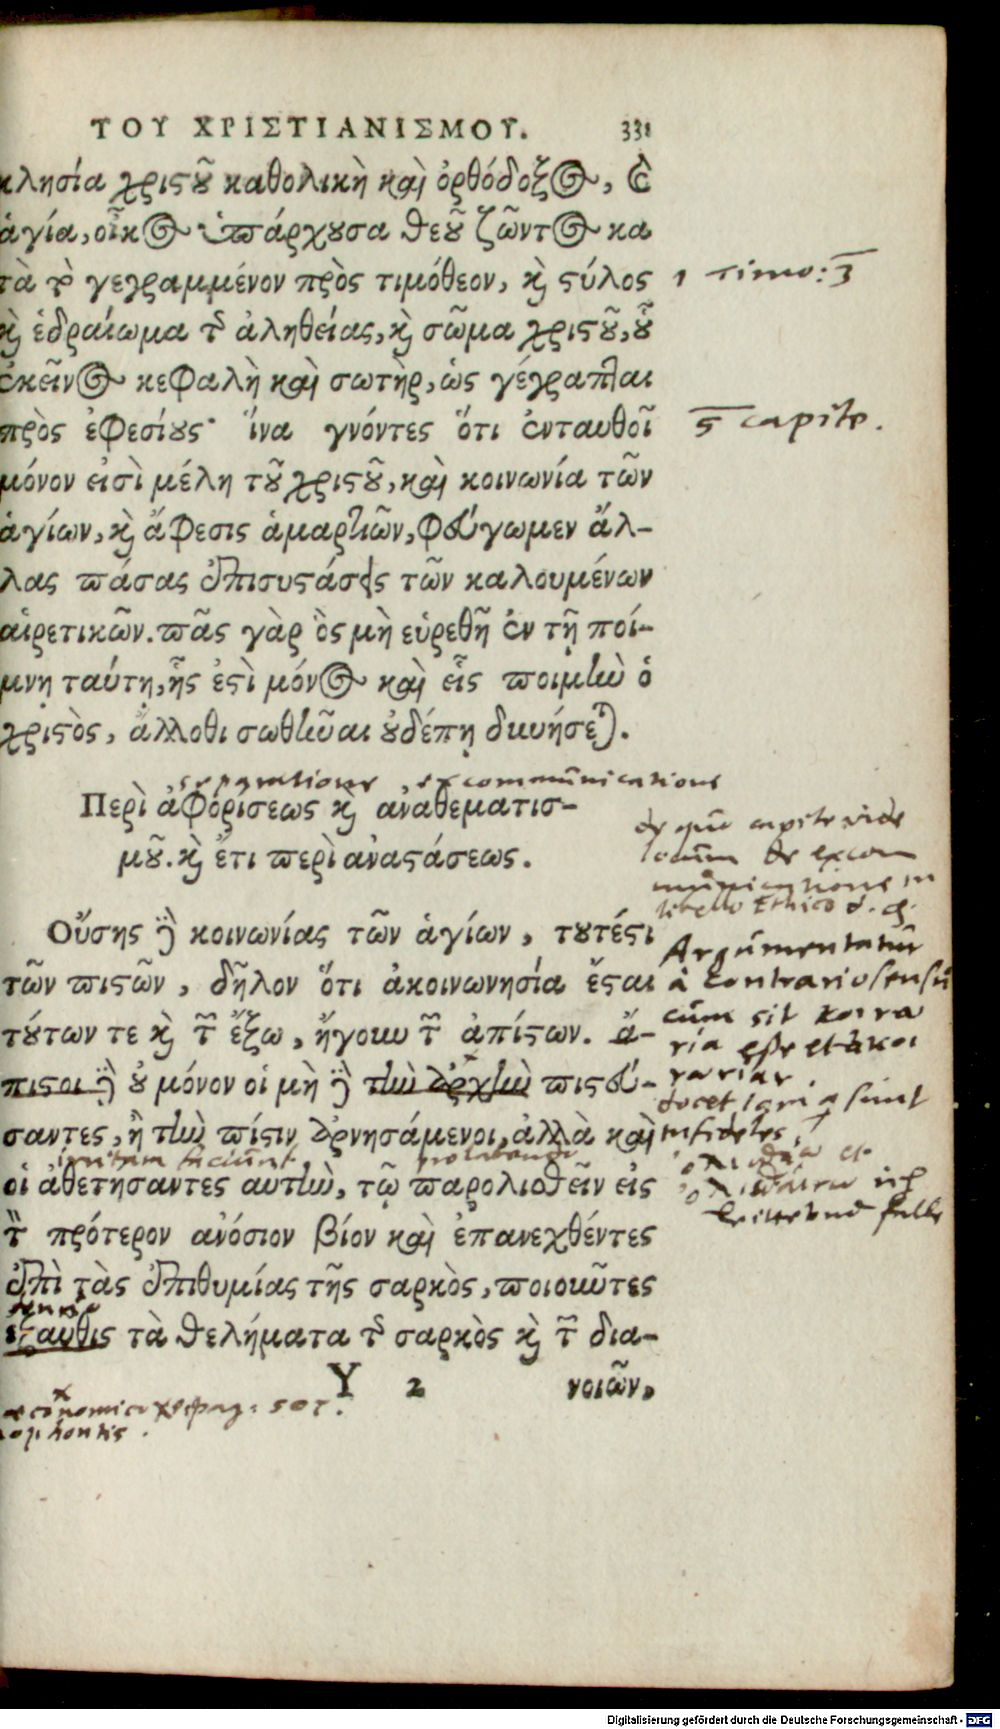 ΤΟΥ ΧΡΙΣΤΙΑΝΙΣΜΟΥ. 331
κλησία χριστοῦ καθολικὴ καὶ ὀρθόδοξος, ἐ
ἁγία, οἶκος ὑπάρχουσα θεοῦ ζῶντος κα
τὰ τὸ γεγραμμένον πρὸς τιμόθεον, καὶ στύλος
1 Timo: 3
καὶ ἑδραίωμα τῆς ἀληθείας, καὶ σῶμα χριστοῦ, οὗ
ἐκεῖνος κεφαλὴ καὶ σωτὴρ, ὡς γέγραπται
πρὸς ἐφεσίους· ἵνα γνόντες ὅτι ἐνταυθοῖ
5 capite.
μόνον εἰσὶ μέλη τοῦ χριστοῦ, καὶ κοινωνία τῶν
ἁγίων, καὶ ἄφεσις ἁμαρτιῶν, φεύγωμεν ἄλ-
λας πάσας ἐπισυστάσεις τῶν καλουμένων
αἱρετικῶν. πᾶς γὰρ ὃς μὴ εὑρεθῇ ἐν τῇ ποί-
μνῃ ταύτῃ, ἧς ἐστὶ μόνος καὶ εἷς ποιμὴν ὁ
χριστὸς, ἄλλοθι σωθῆναι οὐδέπῃ δυνήσεται.
separatione excommunicatione
Περὶ ἀφορίσεως καὶ ἀναθεματισ-
μοῦ. καὶ ἔτι περὶ ἀναστάσεως.
de qua capite vide
locum de excom
municatione in
libello Ethico d. d.
Οὔσης δὲ κοινωνίας τῶν ἁγίων, τουτέστι
τῶν πιστῶν, δῆλον ὅτι ἀκοινωνησία ἔσται
τούτων τε καὶ τῶν ἔξω, ἤγουν τῶν ἀπίστων. ἄ-
πιστοι δὲ οὐ μόνον οἱ μὴ δὲ τὴν ἀρχὴν πιστεύ-
σαντες, ἢ τὴν πίστιν ἀρνησάμενοι, ἀλλὰ καὶ
Argumentatur
à contrario sensu
cum sit
esse et
docet qui sint
infideles
irritam faciunt
οἱ ἀθετησαντες αυτὴν, τῷ παρολισθεῖν εἰς
τὸν πρότερον ἀνόσιον βίον καὶ ἐπανεχθέντες
ἐπὶ τὰς ἐπιθυμίας τῆς σαρκὸς, ποιοῦντες
ἐξαῦθις τὰ θελήματα τῆς σαρκὸς καὶ τῶν δια-
Υ 2 νοιῶν,
Digitalisierung gefördert durch die Deutsche Forschungsgemeinschaft - DFG